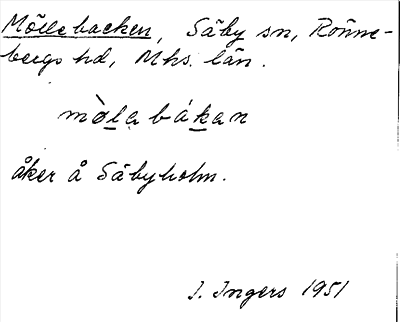 Möllebacken, Säby sn, Rönne-
bergs hd, Mhs. län.
mòlabákan
åker å Säbyholm.
I. Ingers 1951